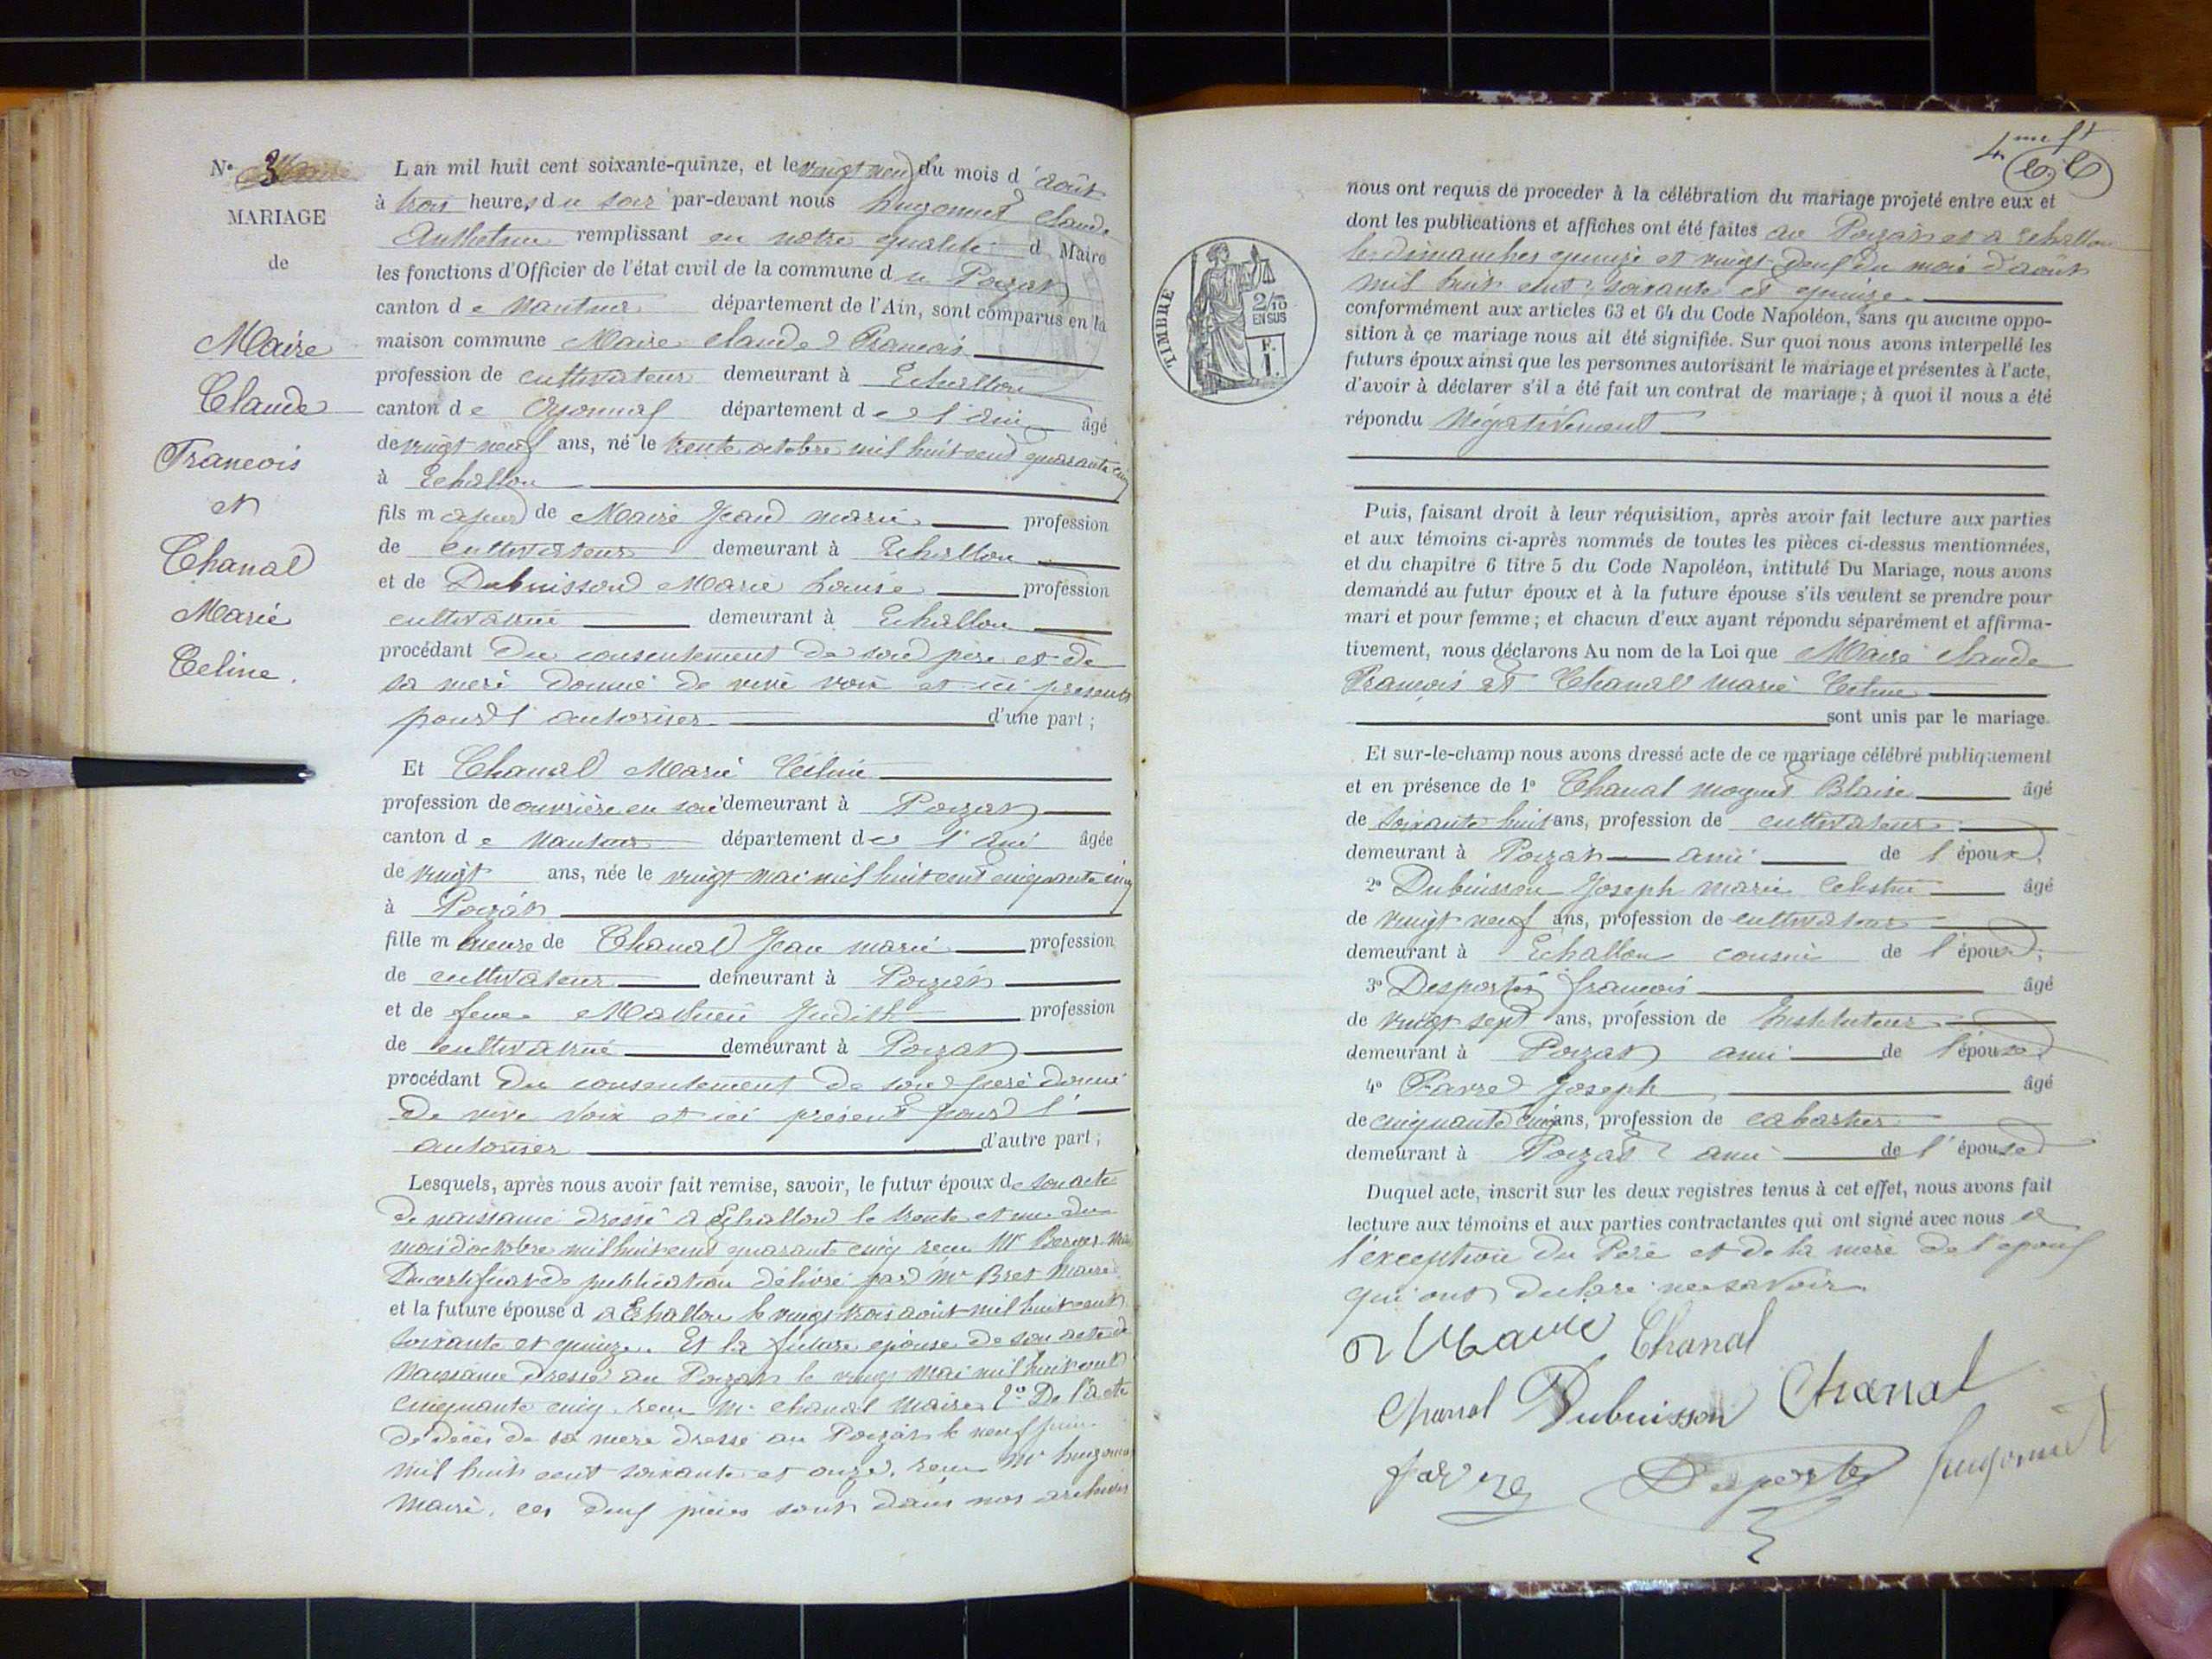 N° 3
MARIAGE
de
Maire
Claude
Francois
et
Chanal
Marie
Celine.
L'an mil huit cent soixante-quinze, et le vingt neuf du mois d'août
à trois heures du soir par-devant nous hugonnet Claude
Anthelme remplissant en notre qualité d Maire
les fonctions d'Officier de l'état civil de la commune du Poizat
canton de Nantua département de l'Ain, sont comparus en la
maison commune Maire Claude François
profession de cultivateur demeurant à Echallon
canton de Oyonnax département de l'ain âgé
de vingt neuf ans, né le trente octobre mil huit cent quarante cinq
à Echallon
fils majeur de Maire Jean marie profession
de cultivateur demeurant à Echallon
et de Dubuisson Marie Louise profession
cultivatrice demeurant à Echallon
procédant du consentement de son pere et de
sa mere donné de vive voix et ici presents
pour l'autoriser d'une part;
Et Chanal Marie Céline
profession de ouvrière en soie demeurant à Poizat
canton de Nantua département de l'Ain âgée
de vingt ans, née le vingt mai mil huit cent cinquante cinq
à Poizat
fille mineure de Chanal Jean marie profession
de cultivateur demeurant à Poizat
et de feue Mathieu Judith profession
de cultivatrice demeurant à Poizat
procédant du consentement de son pere donné
de vive voix et ici présent pour l'
autoriser d'autre part;
Lesquels, après nous avoir fait remise, savoir, le futur époux de son acte
de naissance dressé a Echallon le trente et un du
mois d'octobre mil huit cent quarante cinq reçu Mr Berger
Du certificat de publication délivré par Mr Bret Maire
et la future épouse d a Echallon le vingt trois août mil huit cent
soixante et quinze. Et la future epouse de son acte de
Naissance dressé au Poizat le vingt mai mil huit cent
cinquante cinq reçu Mr Chanal Maire. 2° De l'acte
de décès de sa mere dressé au Poizat le neuf juin
mil huit cent soixante et onze, reçu Mr hugonnet
Maire. ces deux pièces sont dans nos archives
4me ft
nous ont requis de procéder à la célébration du mariage projeté entre eux et
dont les publications et affiches ont été faites au Poizat et a Echallon
les dimanches quinze et vingt deux du mois d'août
mil huit cent soixante et quinze.
conformément aux articles 63 et 64 du Code Napoléon, sans qu'aucune oppo-
sition à ce mariage nous ait été signifiée. Sur quoi nous avons interpellé les
futurs époux ainsi que les personnes autorisant le mariage et présentes à l'acte,
d'avoir à déclarer s'il a été fait un contrat de mariage; à quoi il nous a été
répondu Négativement
TIMBRE
2/10
EN SUS
F.
1.
Puis, faisant droit à leur réquisition, après avoir fait lecture aux parties
et aux témoins ci-après nommés de toutes les pièces ci-dessus mentionnées,
et du chapitre 6 titre 5 du Code Napoléon, intitulé Du Mariage, nous avons
demandé au futur époux et à la future épouse s'ils veulent se prendre pour
mari et pour femme; et chacun d'eux ayant répondu séparément et affirma-
tivement, nous déclarons Au nom de la Loi que Maire Claude
François et Chanal Marie Celine
sont unis par le mariage.
Et sur-le-champ nous avons dressé acte de ce mariage célébré publiquement
et en présence de 1° Chanal Blaise âgé
de soixante huit ans, profession de cultivateur
demeurant à Poizat ami de l'époux,
2° Dubuisson Joseph marie Celestin âgé
de vingt neuf ans, profession de cultivateur
demeurant à Echallon cousin de l'époux;
3° Desportes françois âgé
de vingt sept ans, profession de Instituteur
demeurant à Poizat ami de l'épouse
4° Favre Joseph âgé
de cinquante cinq ans, profession de cabartier
demeurant à Poizat ami de l'épouse
Duquel acte, inscrit sur les deux registres tenus à cet effet, nous avons fait
lecture aux témoins et aux parties contractantes qui ont signé avec nous a
l'exception du Pere et de la mere de l'epoux
qui ont declaré ne savoir
Maire Chanal
Chanal Dubuisson Chanal
favre Desportes hugonnet